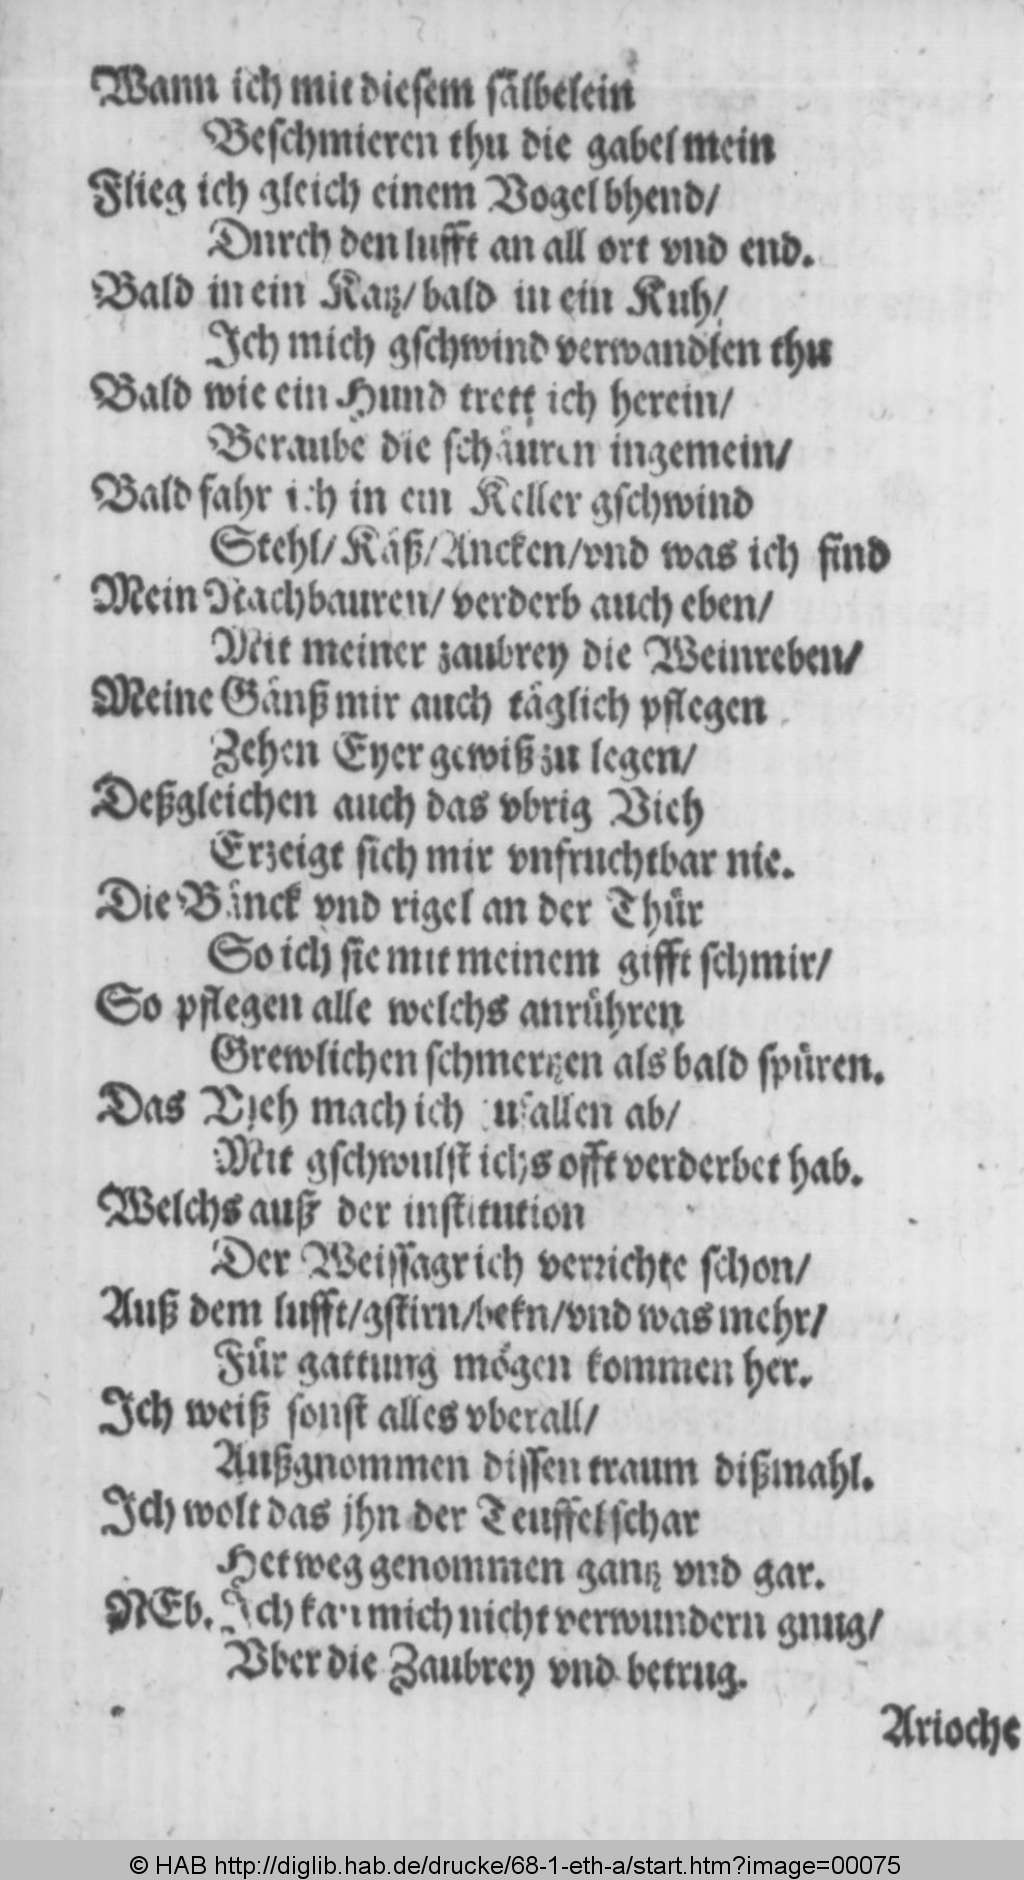 Wann ich mit diesem sälbelein
Beschmieren thu die gabel mein
Flieg ich gleich einem Vogel bhend/
Durch den lufft an all ort vnd end.
Bald in ein Katz/ bald in ein Kuh/
Ich mich gschwind verwandlen thu
Bald wie ein Hund trett ich herein/
Beraube die schäuren ingemein/
Bald fahr ich in ein Keller gschwind
Stehl/ Käß/ Ancken/ vnd was ich find
Mein Nachbauren/ verderb auch eben/
Mit meiner zaubrey die Weinreben/
Meine Gänß mir auch täglich pflegen
Zehen Eyer gewiß zu legen/
Deßgleichen auch das vbrig Vieh
Erzeigt sich mir vnfruchtbar nie.
Die Bänck vnd rigel an der Thür
So ich sie mit meinem gifft schmir/
So pflegen alle welchs anrühren
Grewlichen schmertzen als bald spüren.
Das Vieh mach ich zufallen ab/
Mit gschwulst ichs offt verderbet hab.
Welchs auß der institution
Der Weissagr ich verrichte schon/
Auß dem lufft/ gstirn/ bekn/ vnd was mehr/
Für gattung mögen kommen her.
Ich weiß sonst alles vberall/
Außgnommen dissen traum dißmahl.
Ich wolt das jhn der Teuffel schar
Het weg genommen gantz vnd gar.
NEb. Ich kan mich nicht verwundern gnug/
Vber die Zaubrey vnd betrug.
Arioche
© HAB http://diglib.hab.de/drucke/68-1-eth-a/start.htm?image=00075